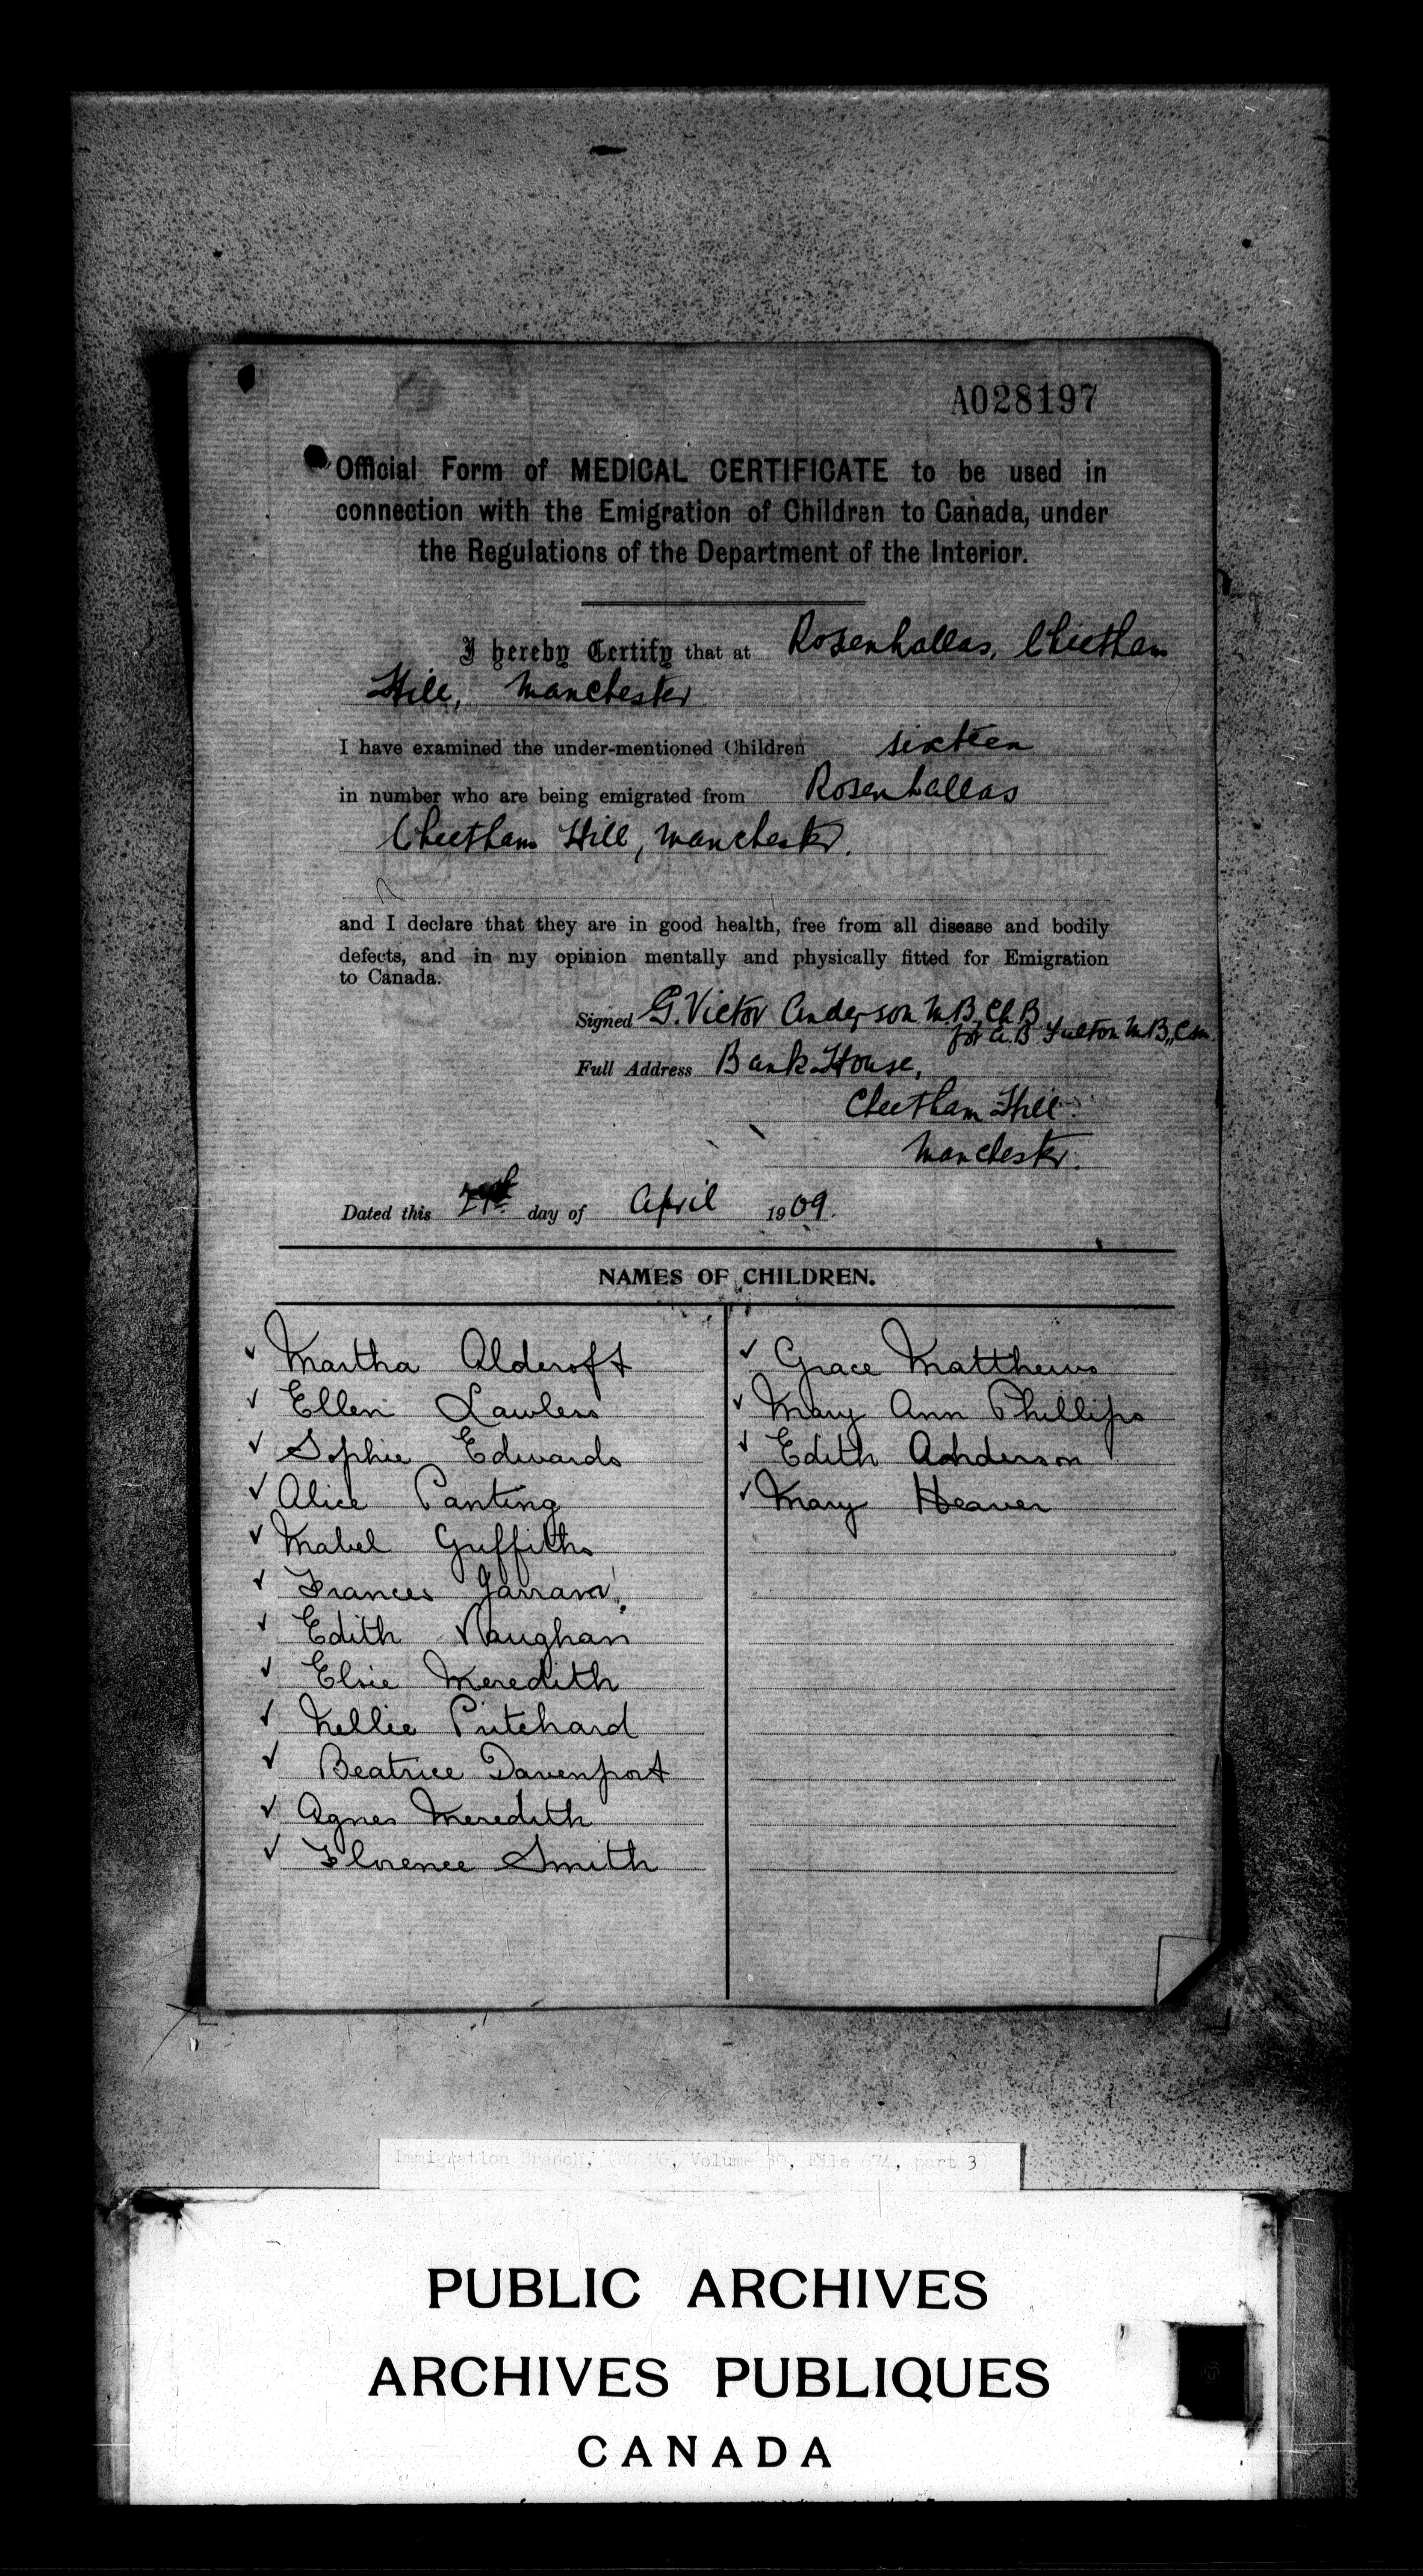 A028197
Official Form of MEDICAL CERTIFICATE to be used in
connection with the Emigration of Children to Canada, under
the Regulations of the Department of the Interior.
I hereby Certify that at Rosenhallas, Cheetham
Hill, Manchester
I have examined the under-mentioned Children sixteen
in number who are being emigrated from Rosenhallas
Cheetham Hill, Manchester.
and I declare that they are in good health, free from all disease and bodily
defects, and in my opinion mentally and physically fitted for Emigration
to Canada.
Signed G. Victor Anderson M.B, Ch.B
for A.B Fulton M.B,, C.M.
Full Address Bank House,
Cheetham Hill
Manchester.
Dated this day of April 1909.
NAMES OF CHILDREN.
✓ Martha Aldcroft
✓ Ellen Lawless
✓ Sophie Edwards
✓ Alice Panting
✓ Mabel Griffiths
✓ Frances
✓ Edith Vaughan
✓ Elsie Meredith
✓ Nellie Pritchard
✓ Beatrice Davenport
✓ Agnes Meredith
✓ Florence Smith
✓ Grace Matthews
✓ Mary Ann Phillips
✓ Edith Anderson
✓ Mary Heaver
Immigration Branch, (RG 76, Volume File 674, part 3)
PUBLIC ARCHIVES
ARCHIVES PUBLIQUES
CANADA